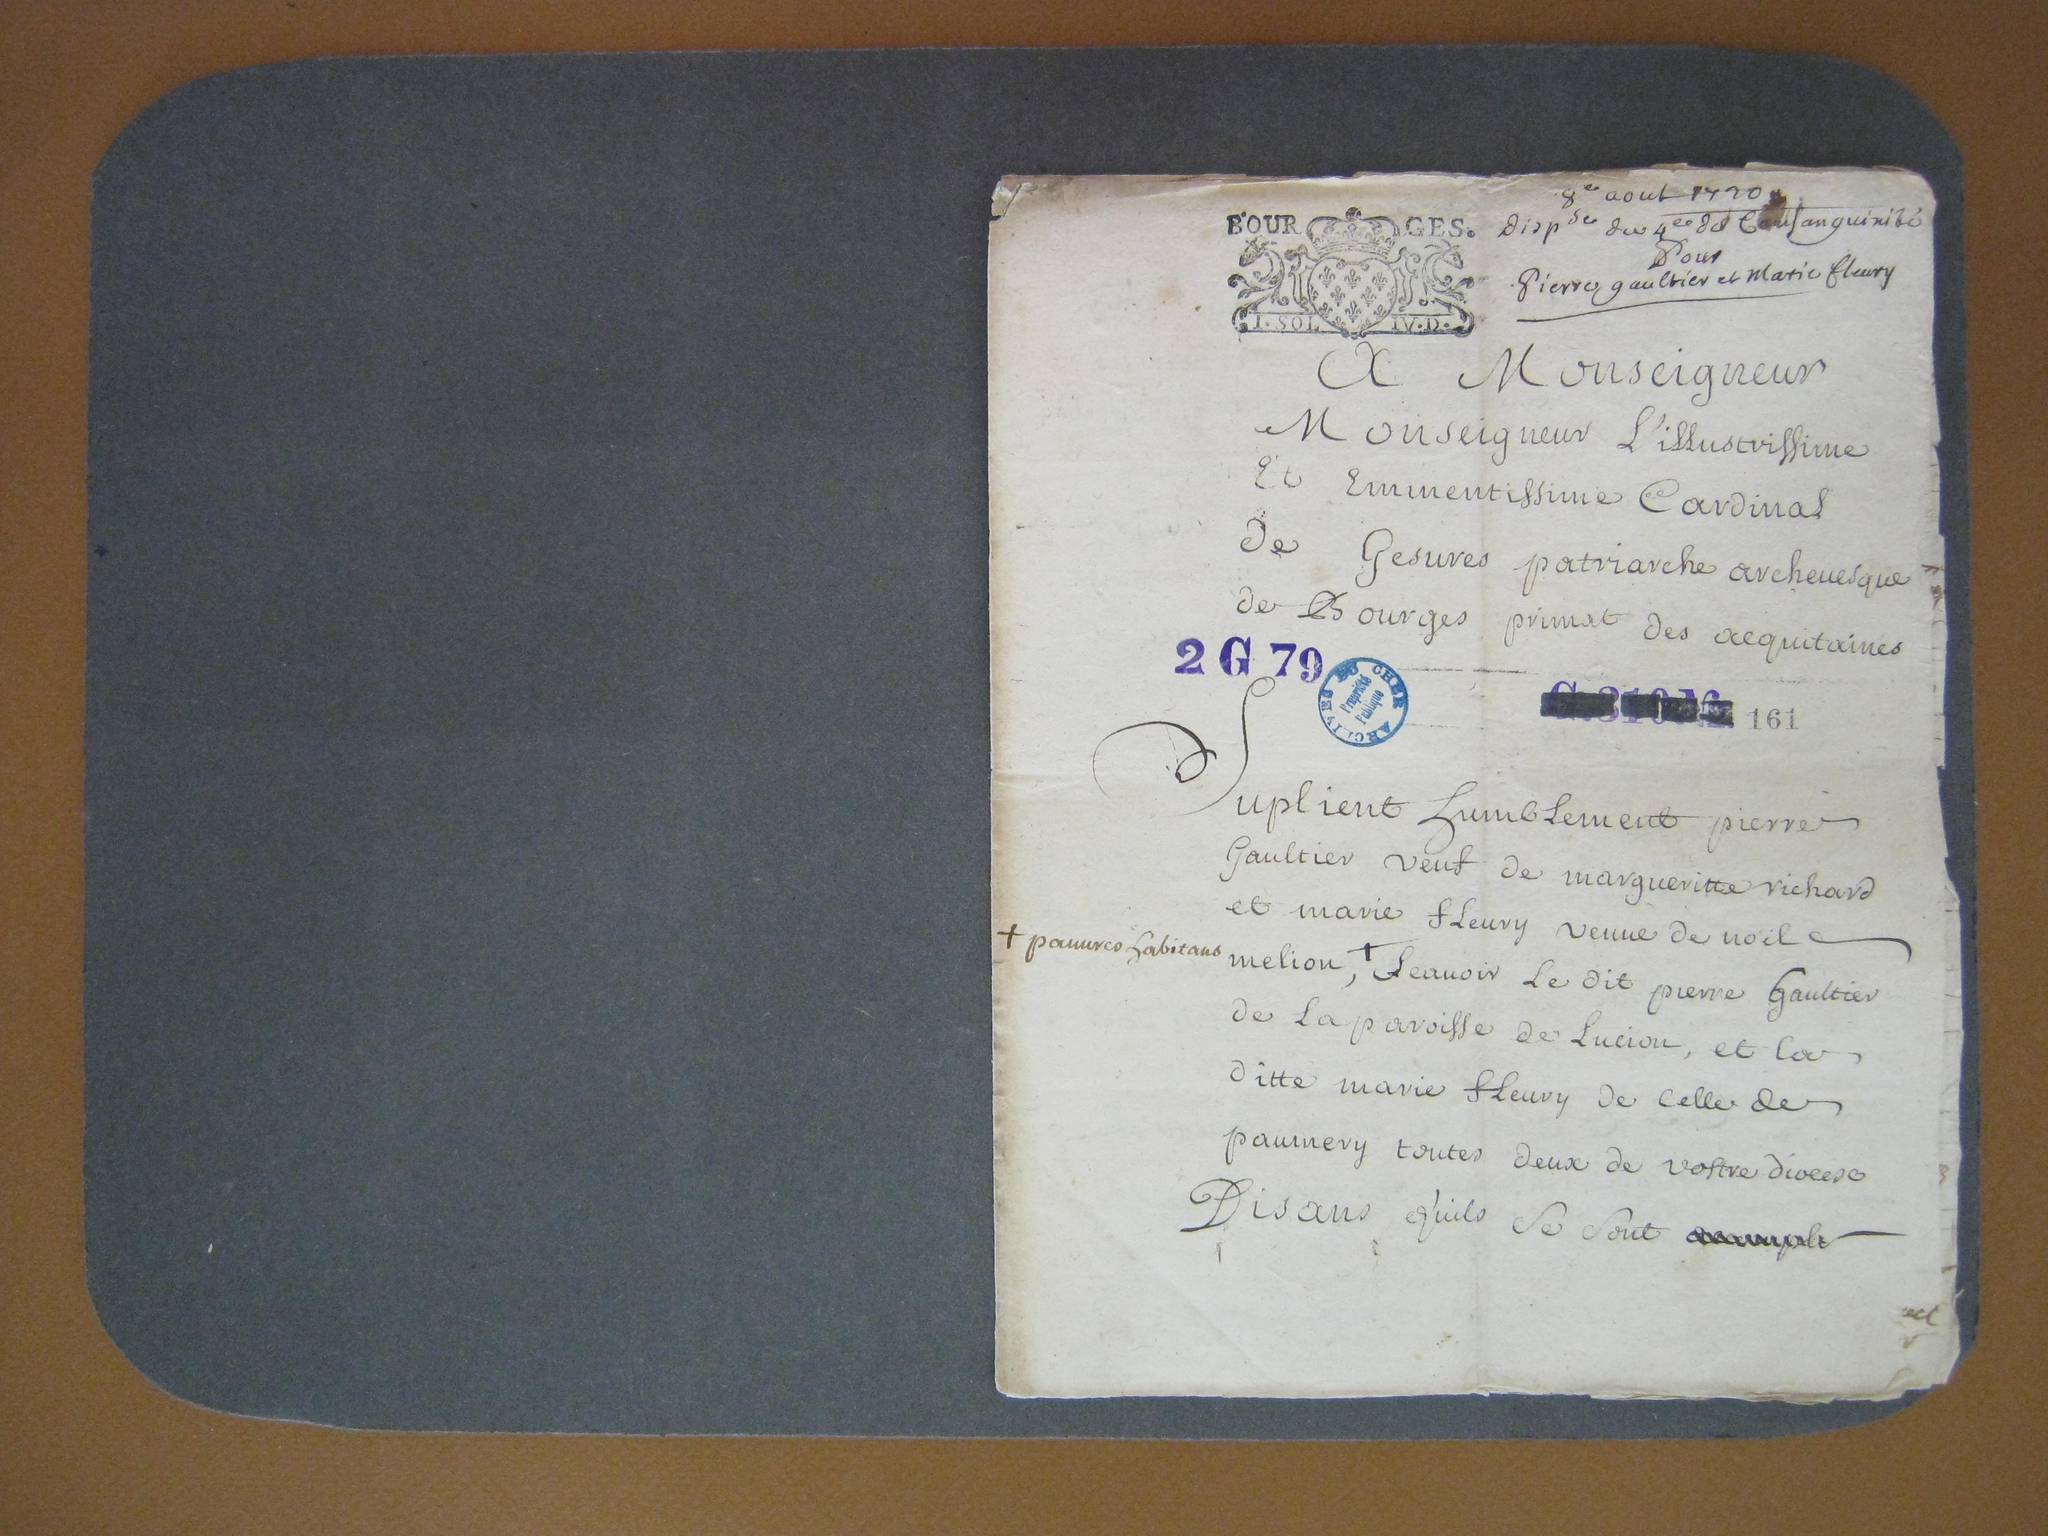 8e aout 1720
BOURGES.
Dispse du 4e dé Consanguinité
Pour
Pierre gaultier et Marie fleury
I. SOL. IV. D.
A Monseigneur
Monseigneur L'illustrissime
Et Eminentissime Cardinal
de Gesures patriarche archeuesque
de Bourges primat des aequitaines
2 G 79
ARCHIVES DU CHER
Propriété
Publique
161
Suplient humblement pierre
Gaultier veuf de margueritte richard
et marie fleury veuue de noil
+ pauures habitans
melion, + scauoir Le dit pierre Gaultier
de La paroisse de Lucion, et la
ditte marie fleury de celle de
paumery toutes deux de vostre diocese
Disans quils se sont